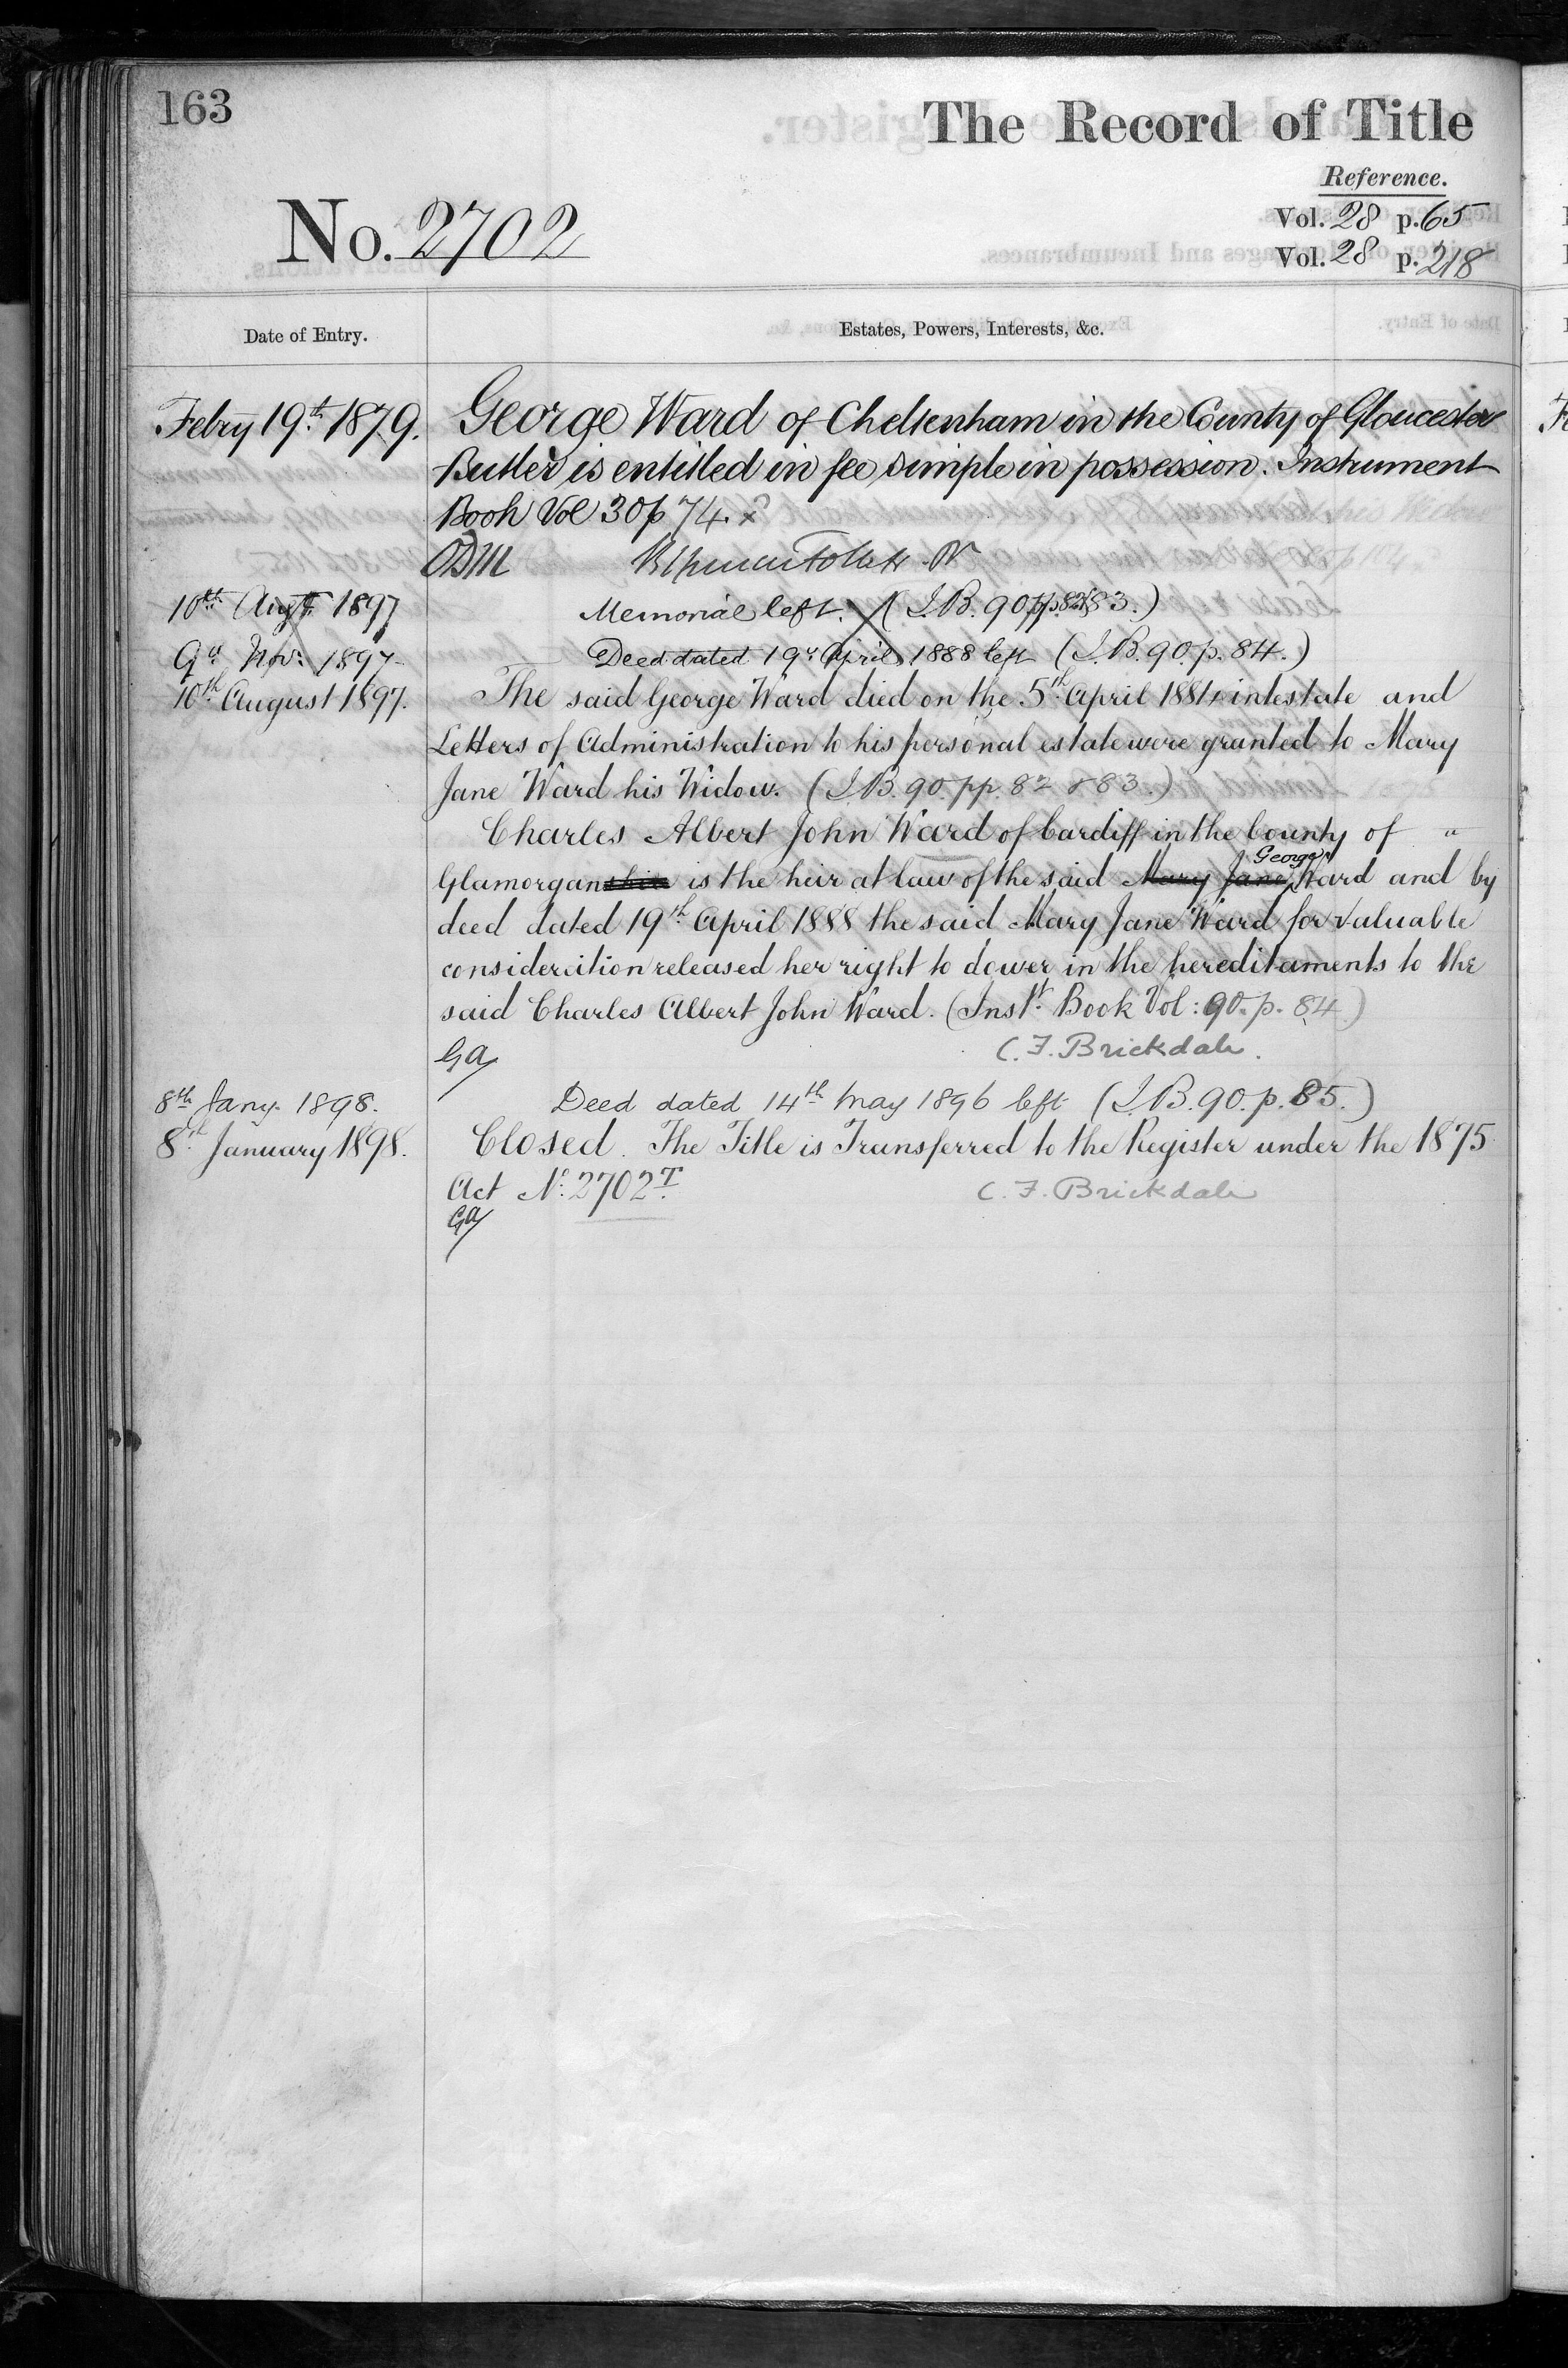 163
The Record of Title
Reference.
No. 2702
Vol. 28 p. 65
Vol. 28 p. 218
Date of Entry.
Estates, Powers, Interests, &c.
Febry 19th 1879. George Ward of Cheltenham in the County of Gloucester
Butler is entitled in fee simple in possession. Instrument
Book Vol 30 p 74.
10th Augt 1897 Memorial left. (I.B. 90 pp. 82 & 83.)
9th Novr 1897 Deed dated 19th April 1888 left (I.B. 90. p. 84.)
10th August 1897. The said George Ward died on the 5th April 1884 intestate and
Letters of Administration to his personal estate were granted to Mary
Jane Ward his Widow. (I.B. 90. pp. 82 & 83.)
Charles Albert John Ward of Cardiff in the County of "
George
Glamorganshire is the heir at law of the said Mary Jane Ward and by
deed dated 19th April 1888 the said Mary Jane Ward for valuable
consideration released her right to dower in the hereditaments to the
said Charles Albert John Ward. (Inst. Book Vol: 90. p. 84.)
GA C. F. Brickdale.
8th Jany. 1898. Deed dated 14th May 1896 left (I.B. 90. p. 85.)
8th January 1898. Closed. The Title is Transferred to the Register under the 1875
Act No. 2702T. C. F. Brickdale
GA